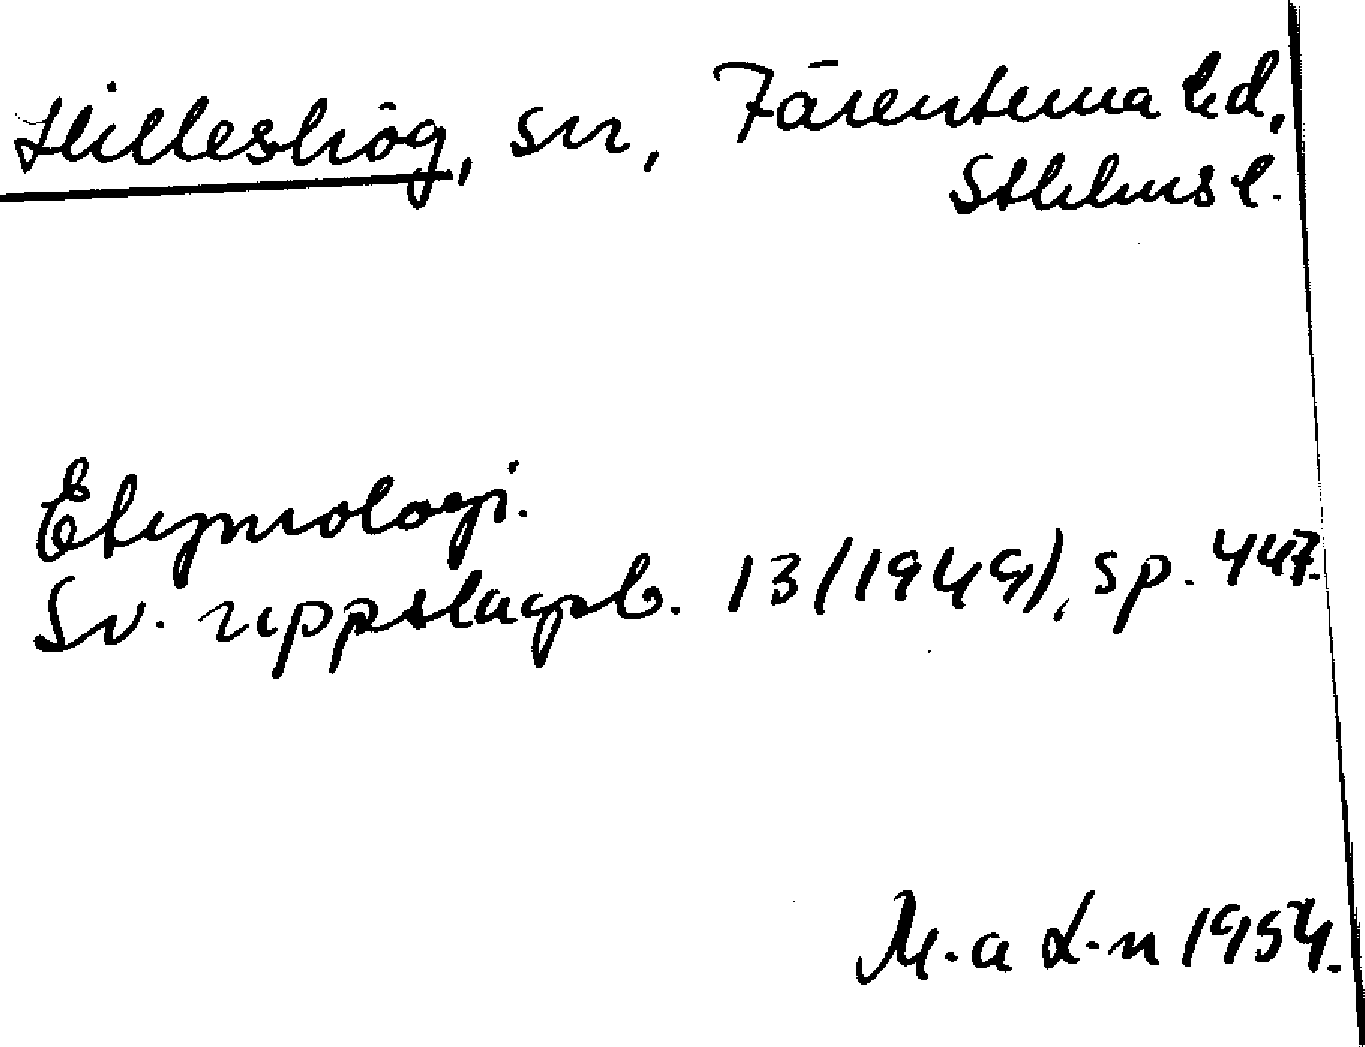 Hilleshög, sn, Färentuna hd,
Sthlms l.
Etymologi.
Sv. uppslagsb. 13 (1949), sp. 447.
M-a L-n 1954.